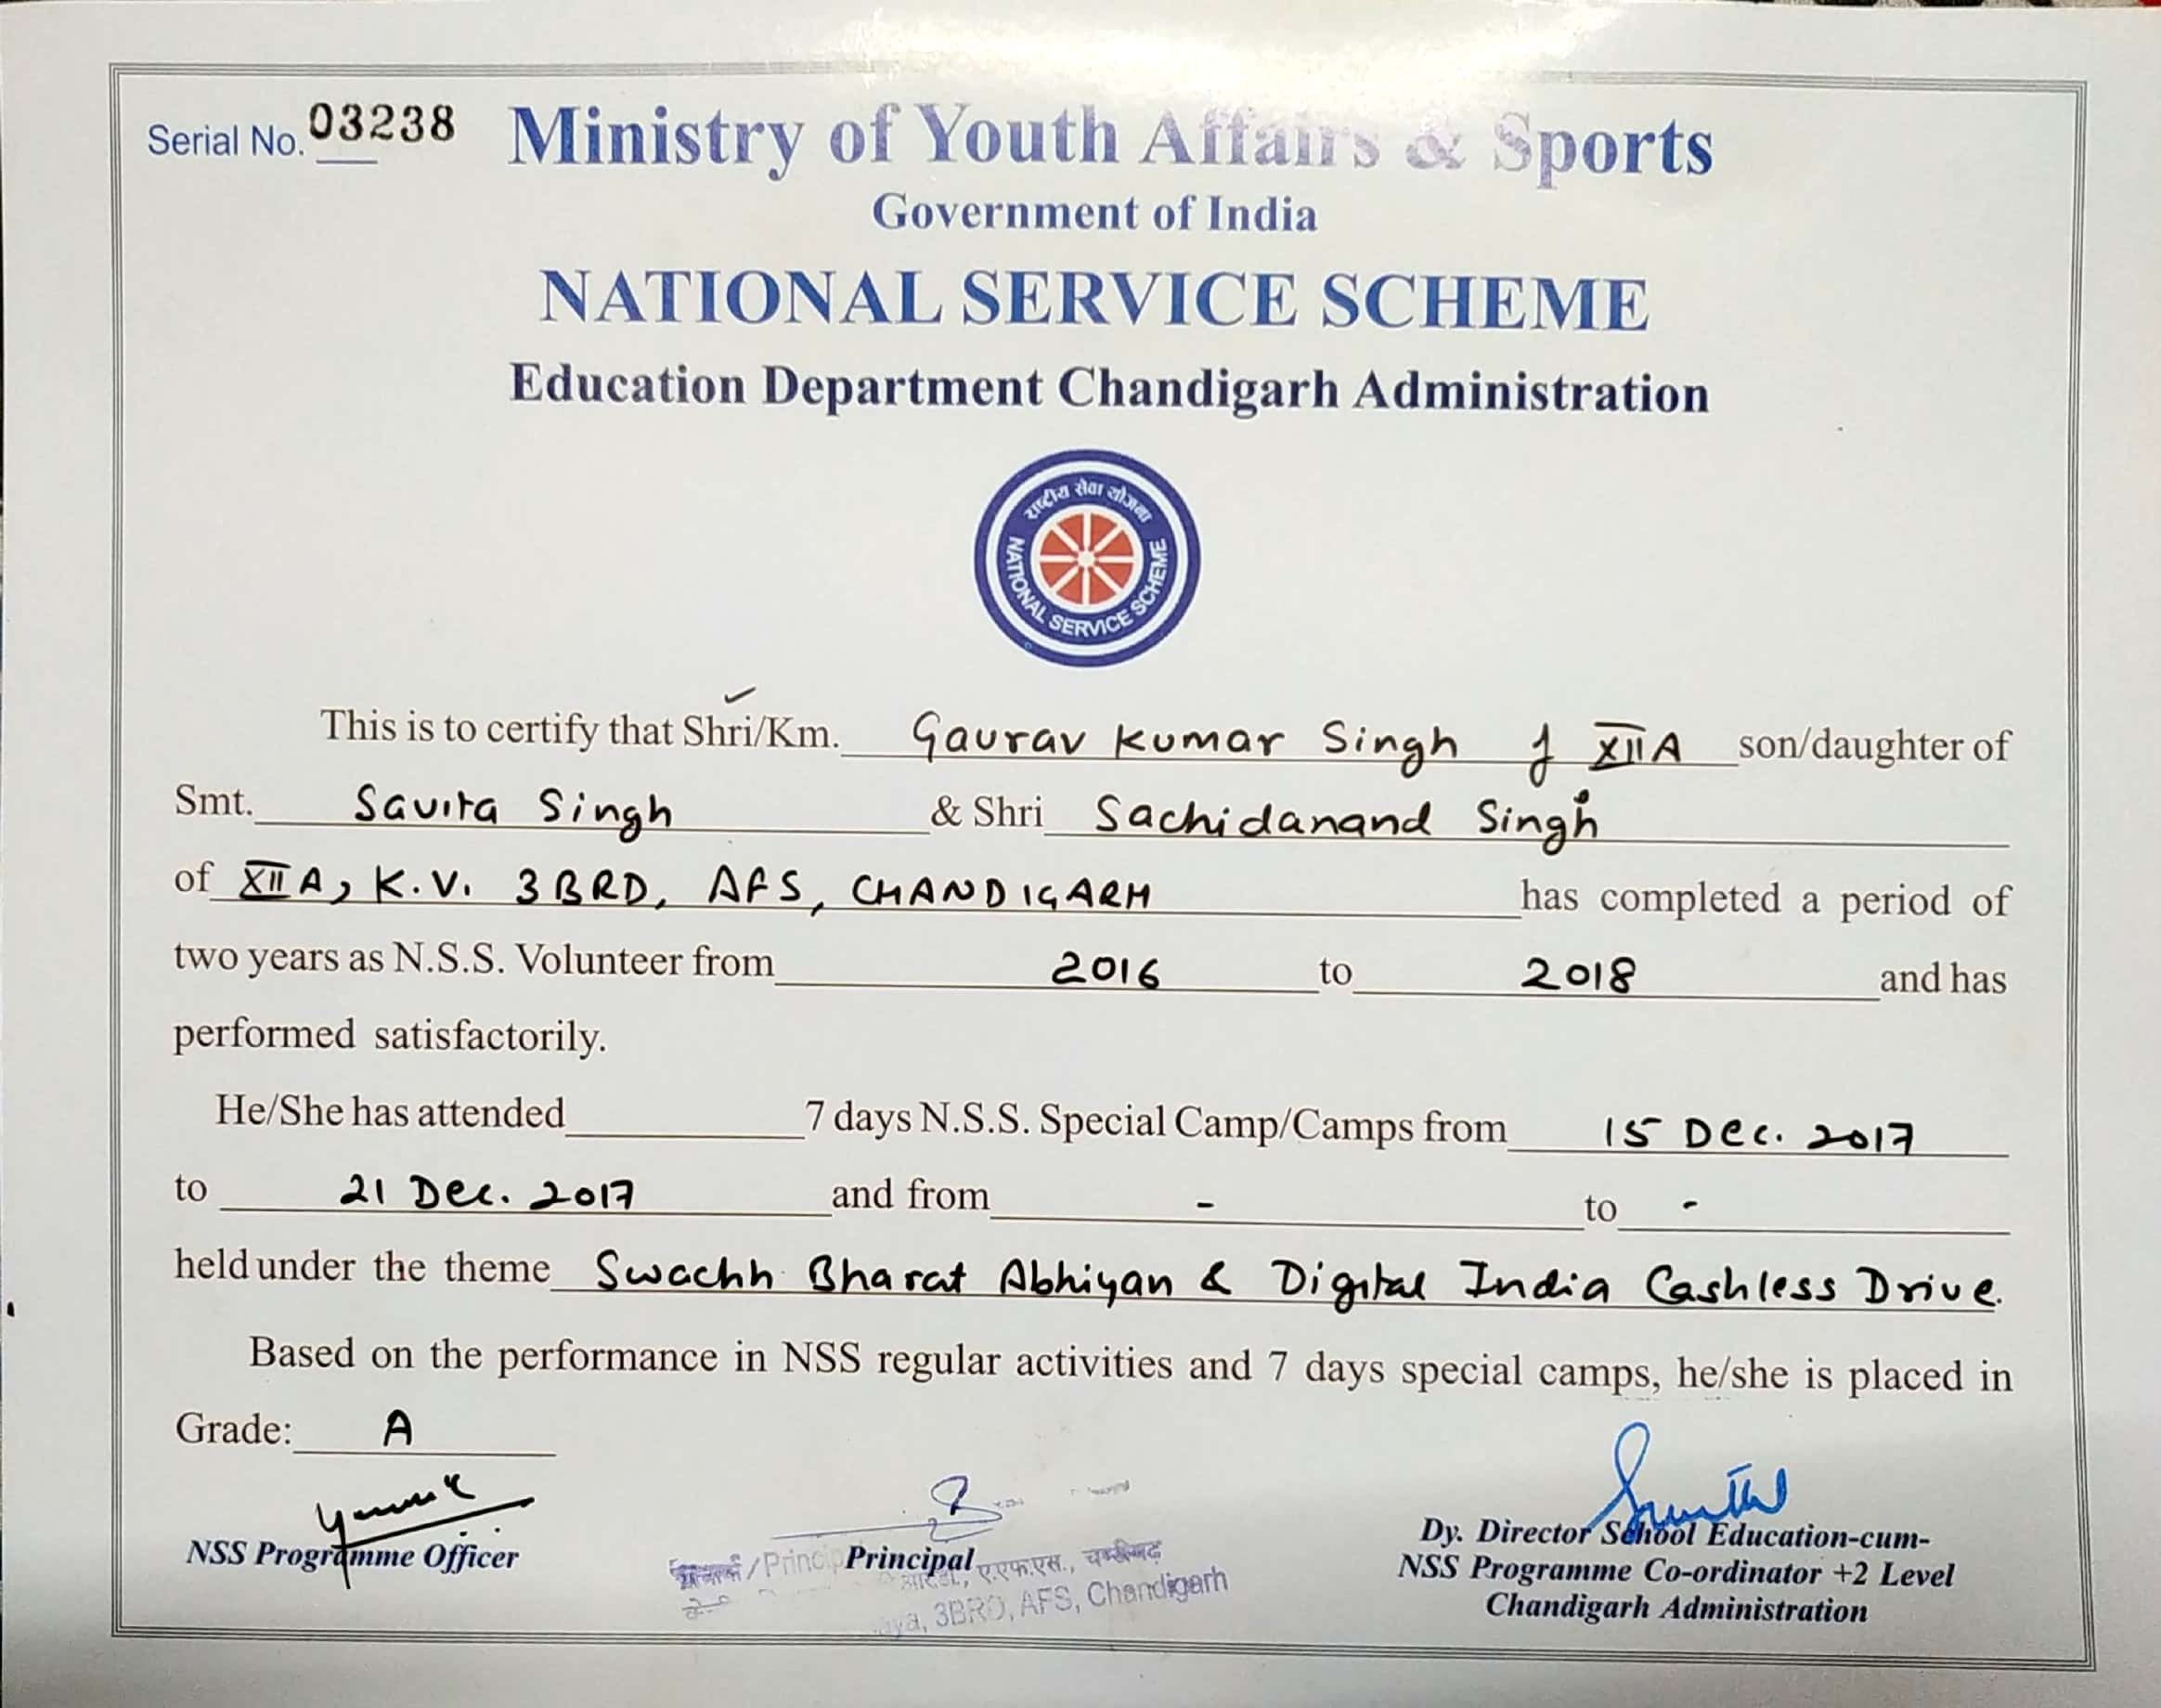 Serial No. 03238
Ministry of Youth Affairs & Sports
Government of India
NATIONAL SERVICE SCHEME
Education Department Chandigarh Administration
राष्ट्रीय सेवा योजना
NATIONAL SERVICE SCHEME
This is to certify that Shri/Km. Gaurav Kumar Singh of XII A son/daughter of
Smt. Savita Singh & Shri Sachidanand Singh
of XII A, K.V. 3 BRD, AFS, CHANDIGARH has completed a period of
two years as N.S.S. Volunteer from 2016 to 2018 and has
performed satisfactorily.
He/She has attended 7 days N.S.S. Special Camp/Camps from 15 Dec. 2017
to 21 Dec. 2017 and from - to -
held under the theme Swachh Bharat Abhiyan & Digital India Cashless Drive.
Based on the performance in NSS regular activities and 7 days special camps, he/she is placed in
Grade: A
NSS Programme Officer
Principal
/ Princip
ए.एफ.एस., चण्डीगढ़
3BRD, AFS, Chandigarh
Dy. Director School Education-cum-
NSS Programme Co-ordinator +2 Level
Chandigarh Administration